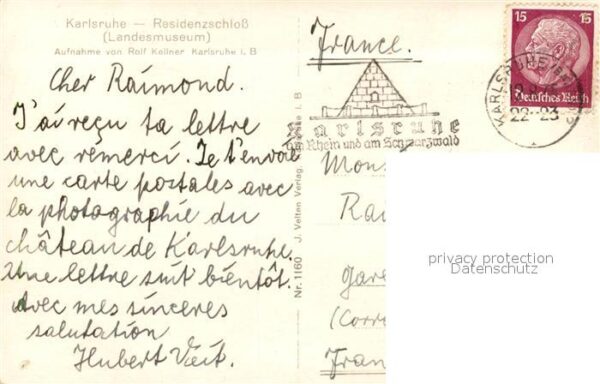 Karlsruhe — Residenzschloß
(Landesmuseum)
Aufnahme von Rolf Kellner Karlsruhe i. B
Cher Raimond.
J'ai reçu ta lettre
avec rémerci. Je t'envoie
une carte postales avec
la photographie du
château de Karlsruhe.
Une lettre suit bientôt.
Avec mes sinceres
salutation
Hubert Veit.
Nr. 1160 J. Velten Verlag, Karlsruhe i. B
France.
Karlsruhe
am Rhein und am Schwarzwald
KARLSRUHE
22-23
15 15
Deutsches Reich
Mons
Rai
Gare
(Corr
Fran
privacy protection
Datenschutz